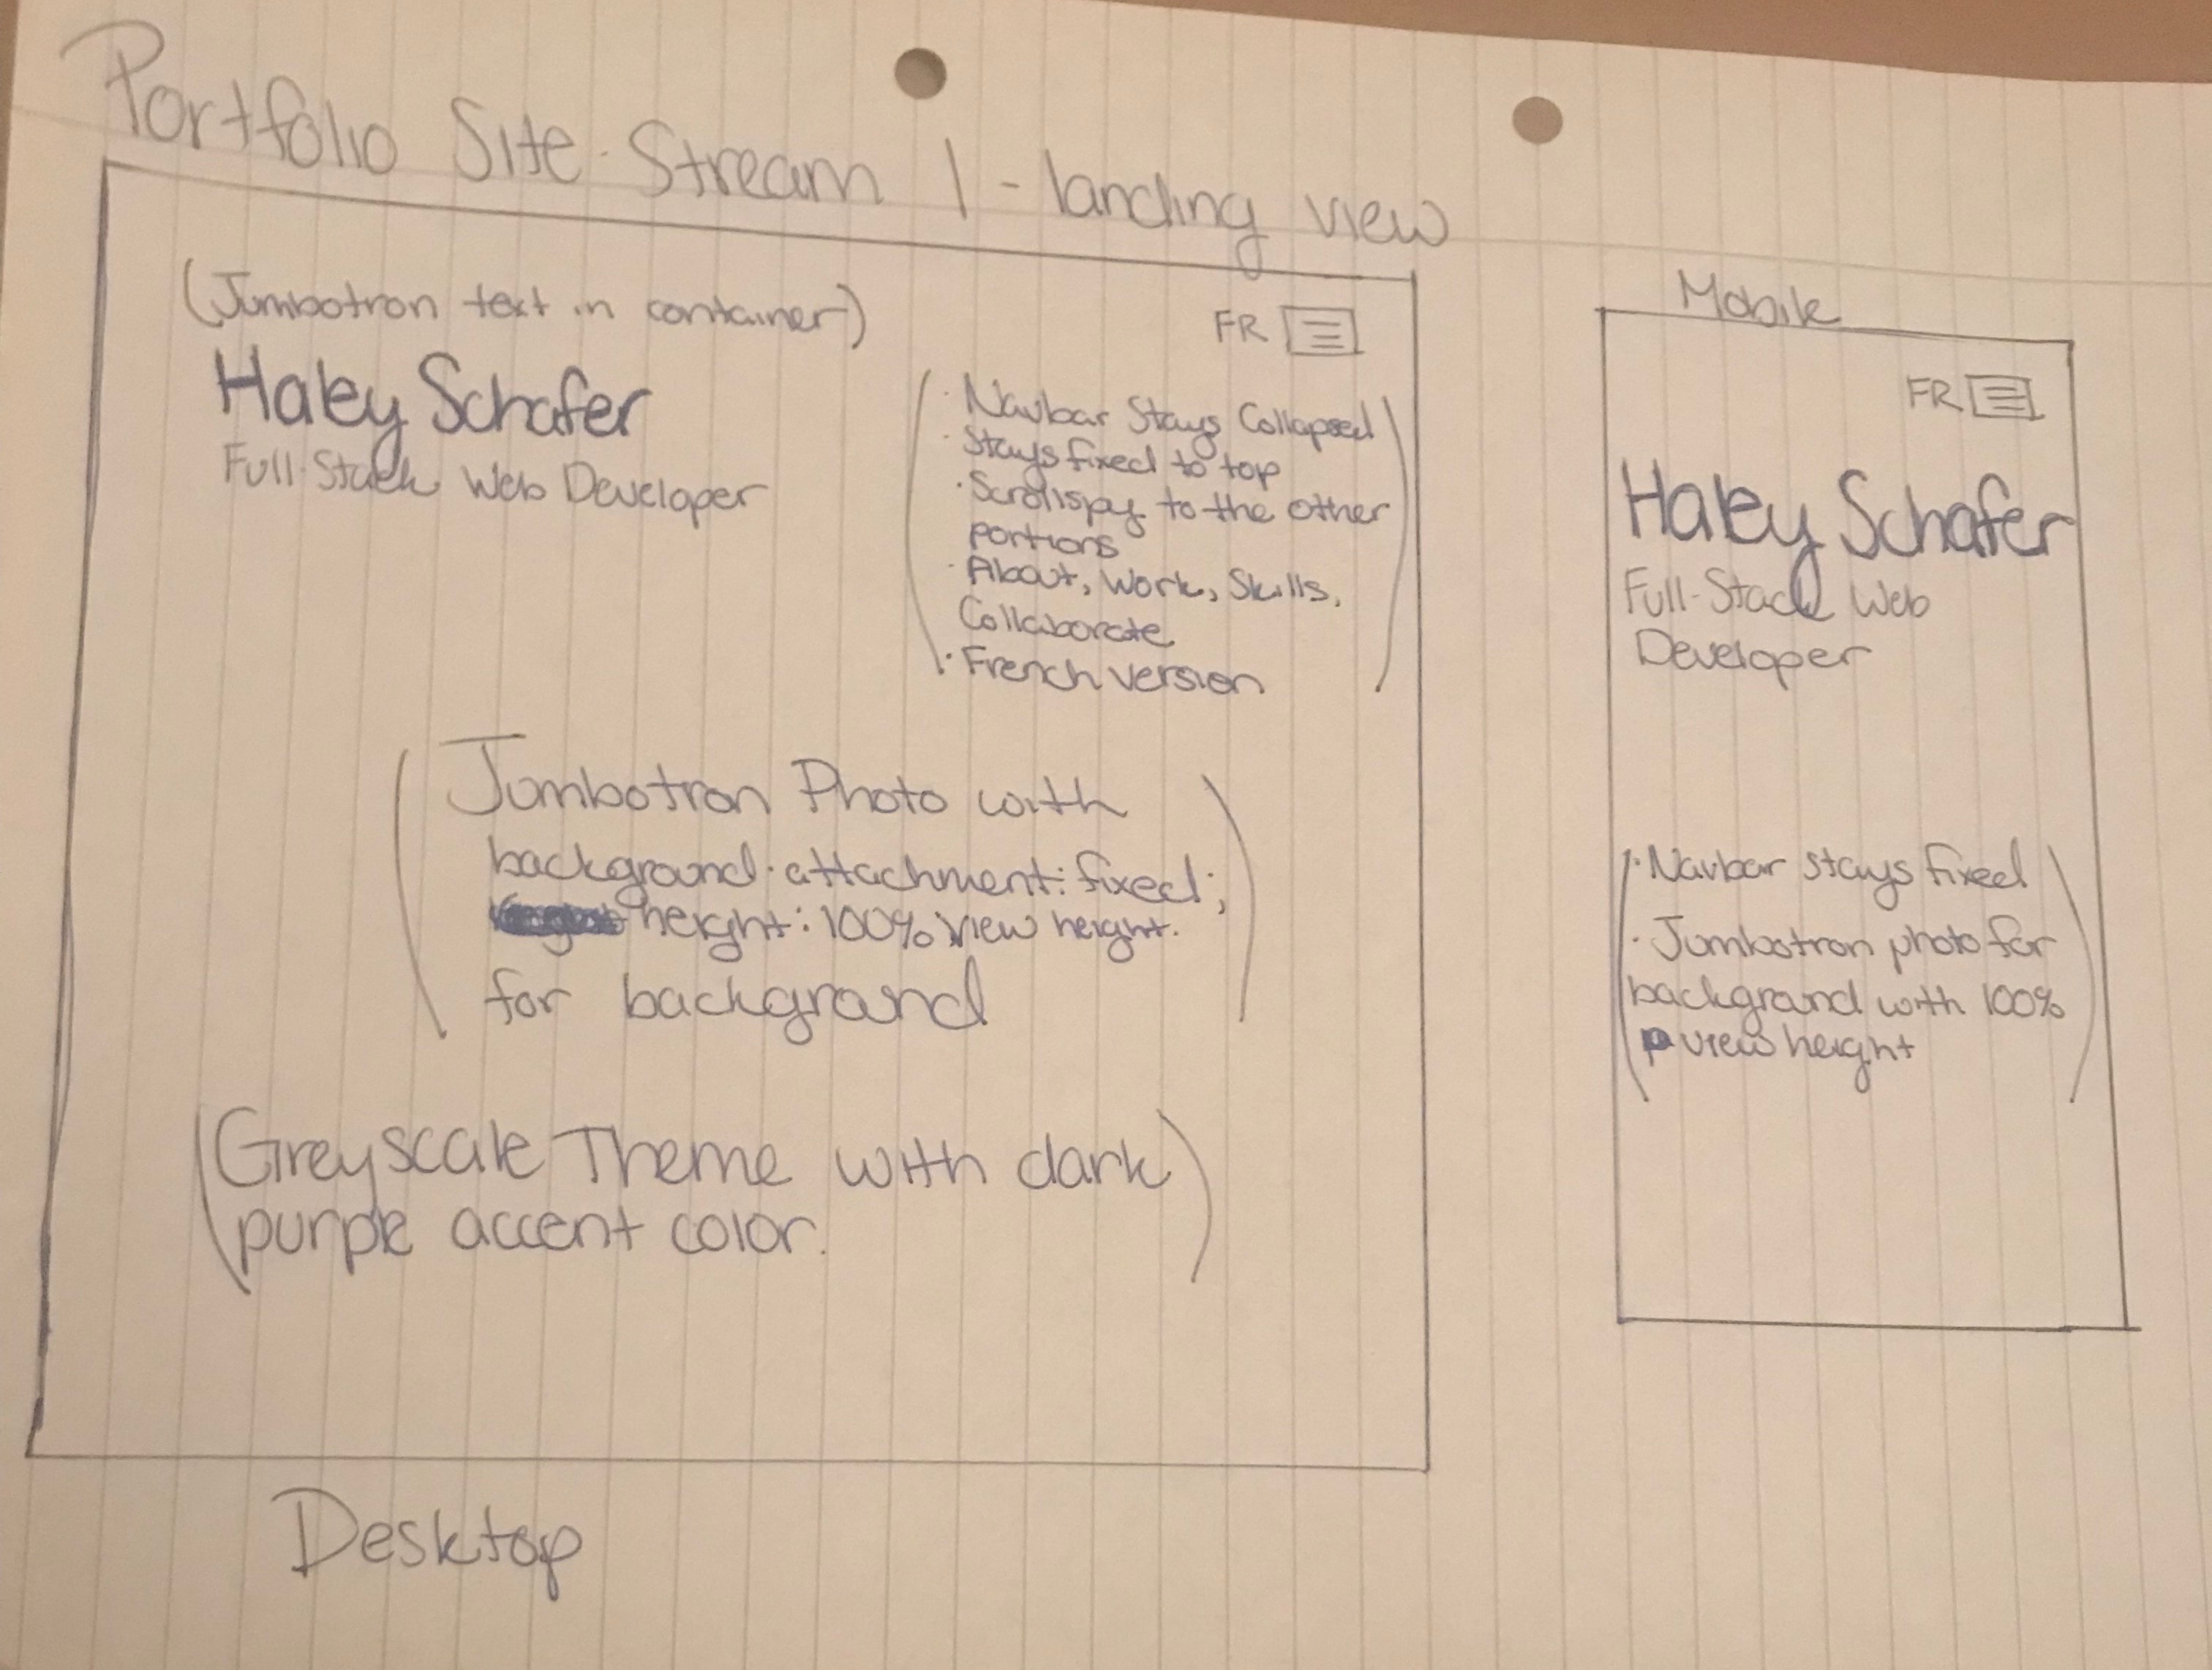 Portfolio Site Stream 1 - landing view
(Jumbotron text in container)
FR
Haley Schafer
Full-Stack Web Developer
( · Navbar Stays Collapsed
· Stays fixed to top
· Scrollspy to the other
portions
· About, Work, Skills,
Collaborate
· French version )
( Jumbotron Photo with
background-attachment: fixed;
height: 100% view height.
for background )
(Greyscale Theme with dark
purple accent color. )
Desktop
Mobile
FR
Haley Schafer
Full-Stack Web
Developer
( · Navbar stays fixed
· Jumbotron photo for
background with 100%
view height )